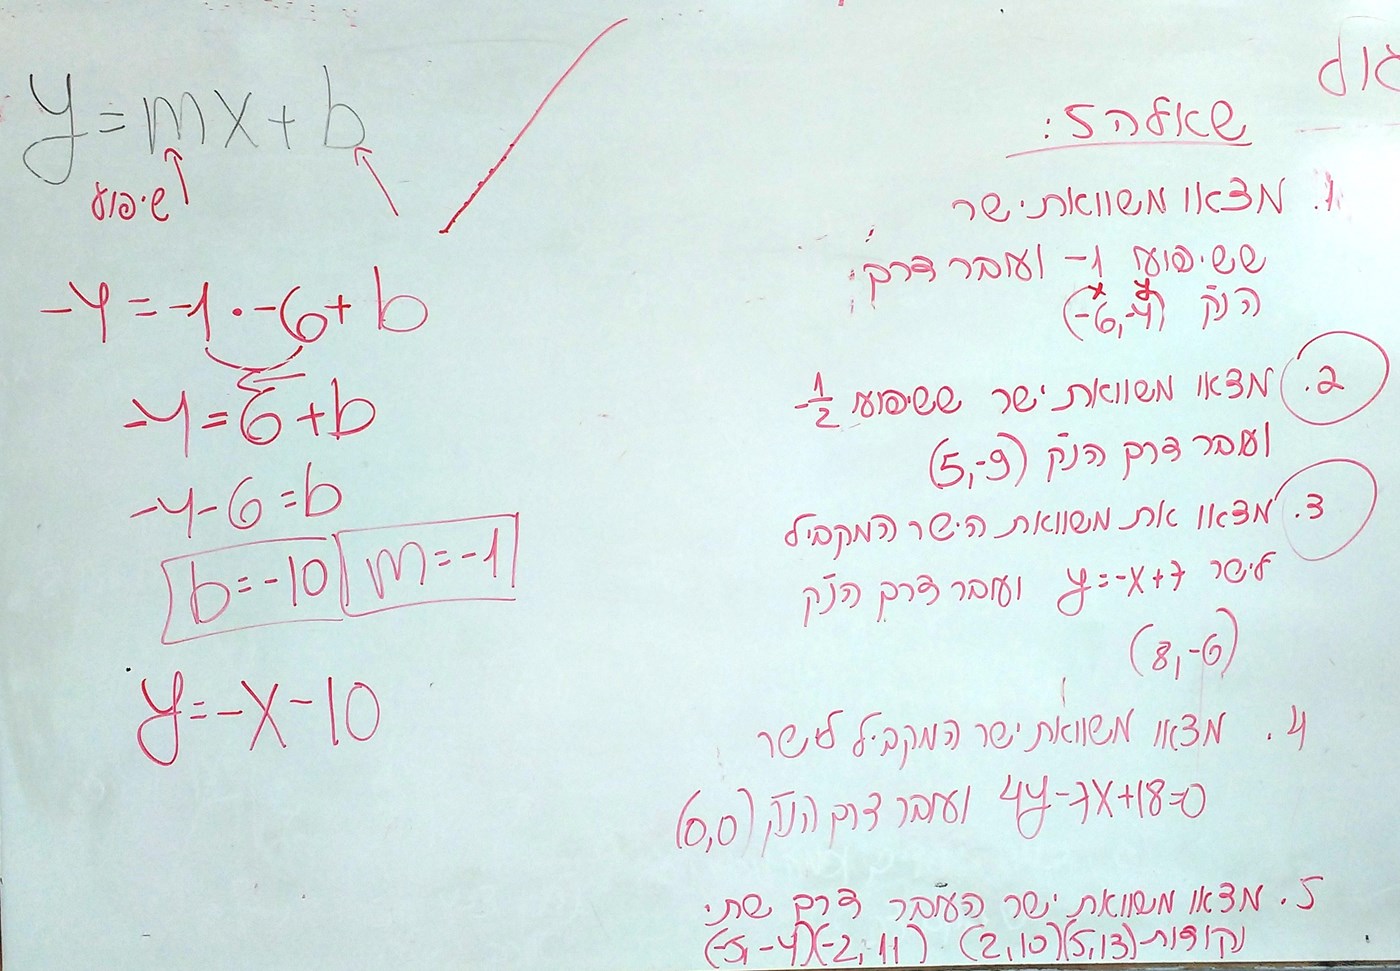 y=mx+b
שיפוע
-4=-1·-6+b
-4=6+b
-4-6=b
b=-10 m=-1
y=-x-10
שאלה 5:
1. מצאו משוואת ישר
ששיפועו -1 ועובר דרך
הנק' (-6,-4)
x y
2. מצאו משוואת ישר ששיפועו -1/2
ועובר דרך הנק' (5,-9)
3. מצאו את משוואת הישר המקביל
לישר y=-x+7 ועובר דרך הנק'
(8,-6)
4. מצאו משוואת ישר המקביל לישר
4y-7x+18=0 ועובר דרך הנק' (0,0)
5. מצאו משוואת ישר העובר דרך שתי
נקודות- (5,13)(2,10) (-2,11)(-5,-4)